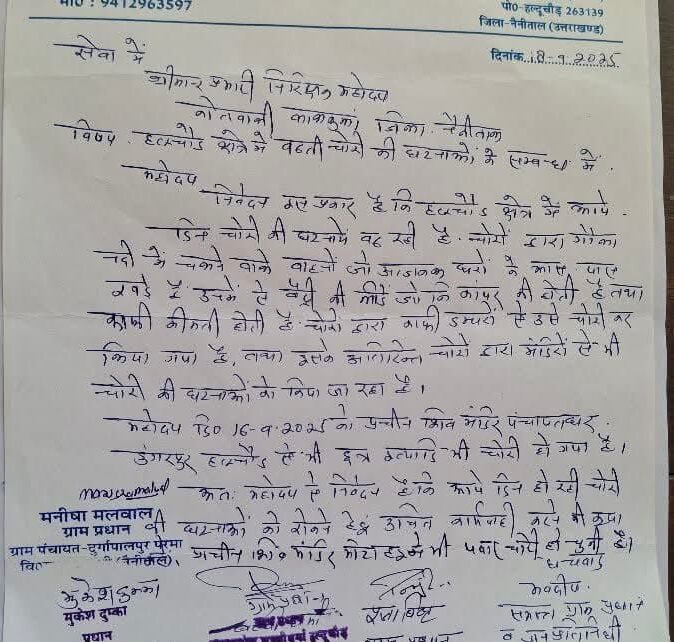 मो० : 9412963597
पो०-हल्दूचौड़ 263139
जिला-नैनीताल (उत्तराखण्ड)
दिनांक 18-9-2025
सेवा में
श्रीमान प्रभारी निरिक्षक महोदय
कोतवाली लालकुआं, जिला. नैनीताल
विषय. हल्दूचौड क्षेत्र में बढती चोरी की घटनाओं के सम्बन्ध में.
महोदय
निवेदन इस प्रकार है कि हल्दूचौड क्षेत्र में आये.
दिन चोरी की घटनायें बढ रही है. चोरों द्वारा गौला
नदी में चलने वाले वाहनों जो आजकल घरों के आस पास
खडे है उनमें से बैट्री की लीडें जो कि कॉपर की होती है तथा
काफी कीमती होती है. चोरों द्वारा काफी डम्परों से उसे चोरी कर
लिया गया है, तथा इसके अतिरिक्त चोरों द्वारा मंदिरों से भी
चोरी की घटनाओं को किया जा रहा है।
महोदय दि0 16-9-2025 को प्रचीन शिव मंदिर पंचायतघर.
डुंगरपुर हल्दूचौड से भी छत्र इत्यादि भी चोरी हो गया है।
अतः महोदय से निवेदन है कि आये दिन हो रही चोरी
की घटनाओं को रोकने हेतु उचित कार्यवाही करने की कृपा
प्रचीन शिव मंदिर से भी चोरी हो चुकी है।
धन्यवाद
मनीषा मलवाल
ग्राम प्रधान
ग्राम पंचायत-दुर्गापालपुर परमा
मुकेश दुम्का
मुकेश दुम्का
प्रधान
ग्राम प्रधान
भवदीय.
समस्त ग्राम प्रधान